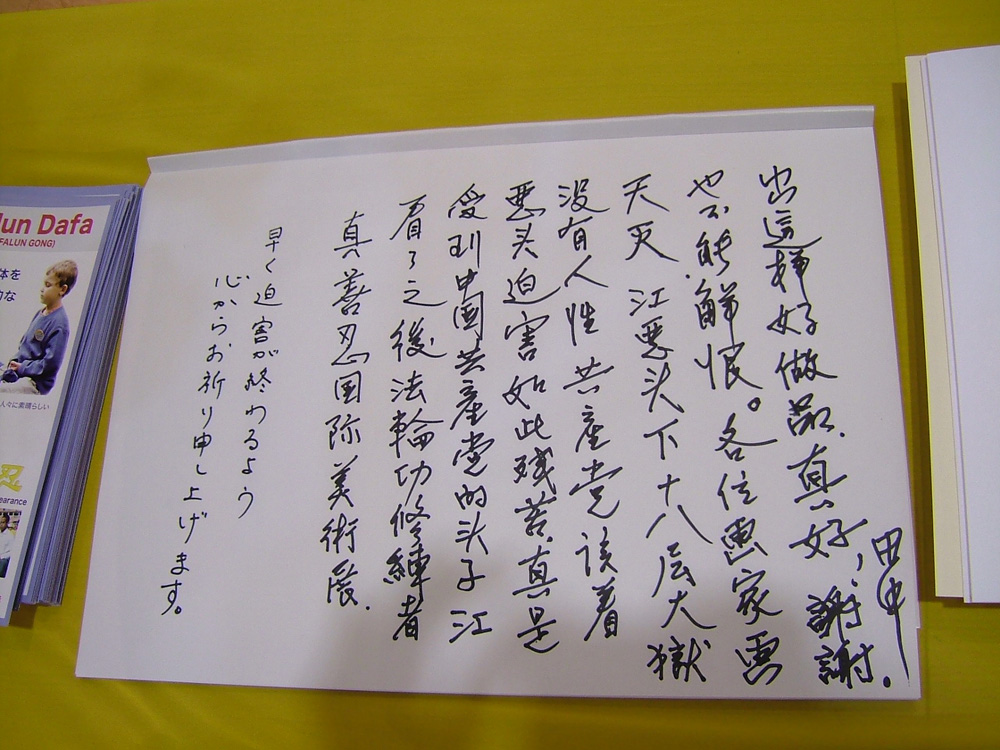 真善忍国际美術展.
看了之後法輪功修練者
受到中国共産党的头子江
恶头迫害如此残苦.真是
没有人性共産党该着
天灭 江恶头下十八层大獄
也不能解恨。各位画家画
出這样好做品.真好,謝謝.
田中
早く迫害が終わるよう
心からお祈り申し上げます。
lun Dafa
FALUN GONG)
体を
的な
人々に素晴らしい
忍
earance